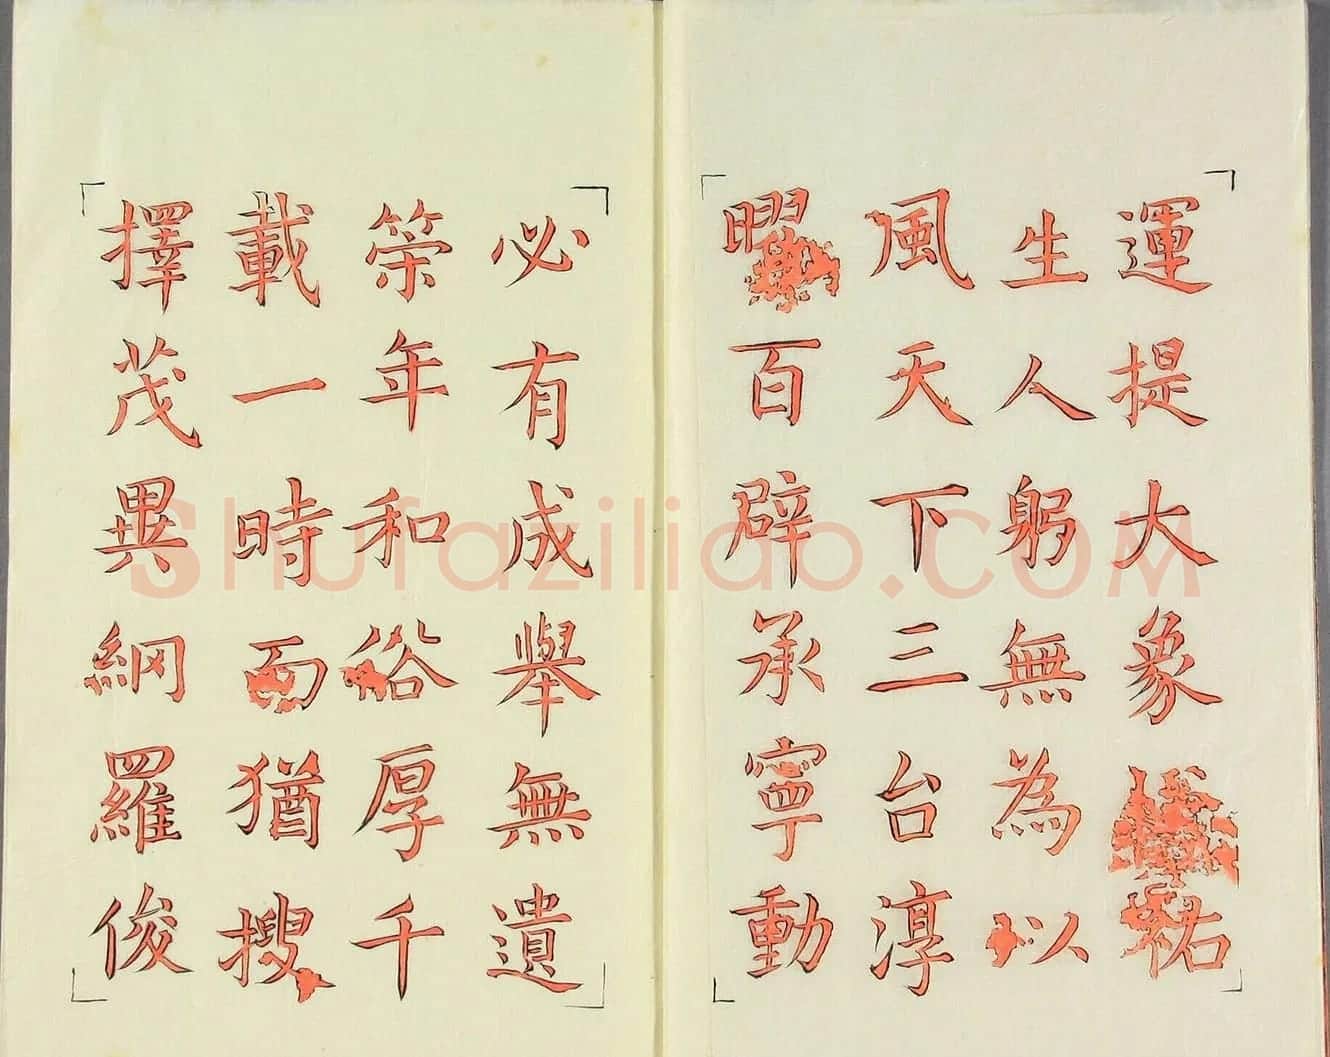 運提大象祐
生人躬無為以
風天下三台淳
曜百辟承寧動
必有成舉無遺
筞年和俗厚千
載一時而猶搜
擇茂異網羅俊
Shufaziliao.COM